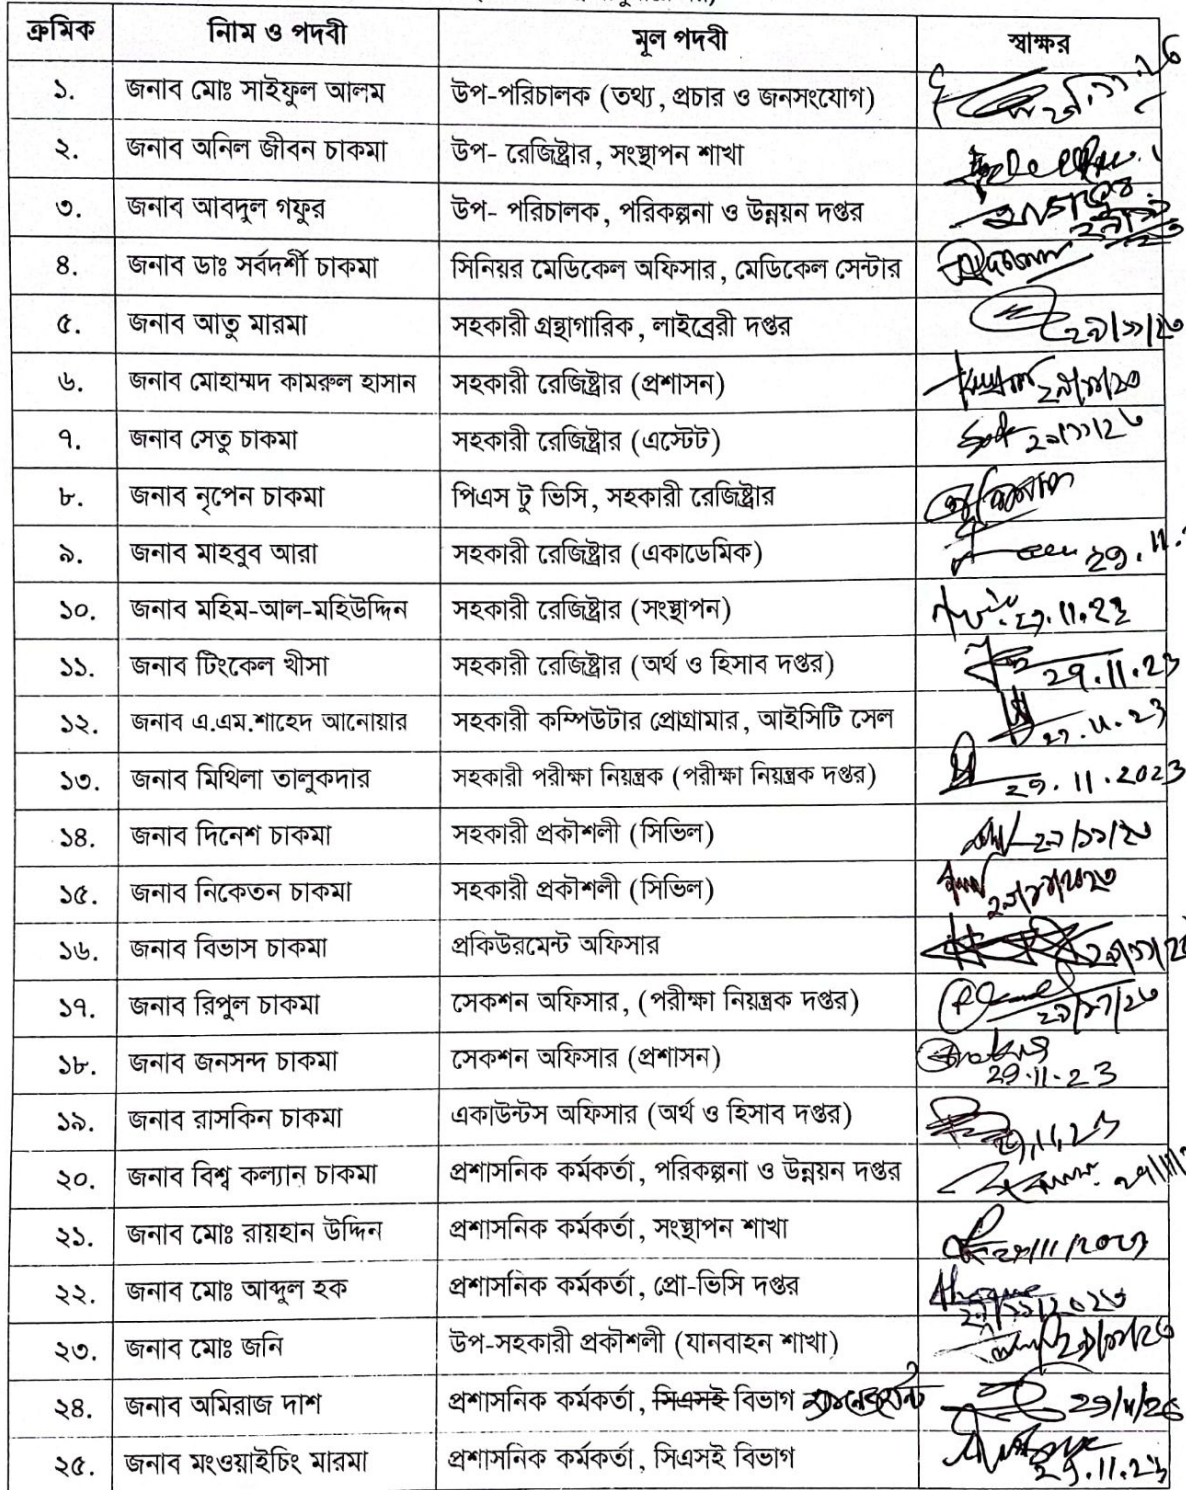 ক্রমিক নিাম ও পদবী মূল পদবী স্বাক্ষর
১. জনাব মোঃ সাইফুল আলম উপ-পরিচালক (তথ্য, প্রচার ও জনসংযোগ)
২. জনাব অনিল জীবন চাকমা উপ- রেজিষ্ট্রার, সংস্থাপন শাখা
৩. জনাব আবদুল গফুর উপ- পরিচালক, পরিকল্পনা ও উন্নয়ন দপ্তর
৪. জনাব ডাঃ সর্বদর্শী চাকমা সিনিয়র মেডিকেল অফিসার, মেডিকেল সেন্টার
৫. জনাব আতু মারমা সহকারী গ্রন্থাগারিক, লাইব্রেরী দপ্তর ২৯/১১/২৩
৬. জনাব মোহাম্মদ কামরুল হাসান সহকারী রেজিষ্ট্রার (প্রশাসন) ২৯/১১/২৩
৭. জনাব সেতু চাকমা সহকারী রেজিষ্ট্রার (এস্টেট) ২৯/১১/২৩
৮. জনাব নৃপেন চাকমা পিএস টু ভিসি, সহকারী রেজিষ্ট্রার
৯. জনাব মাহবুব আরা সহকারী রেজিষ্ট্রার (একাডেমিক) 29.11.
১০. জনাব মহিম-আল-মহিউদ্দিন সহকারী রেজিষ্ট্রার (সংস্থাপন) 29.11.23
১১. জনাব টিংকেল খীসা সহকারী রেজিষ্ট্রার (অর্থ ও হিসাব দপ্তর) 29.11.23
১২. জনাব এ.এম.শাহেদ আনোয়ার সহকারী কম্পিউটার প্রোগ্রামার, আইসিটি সেল 29.11.23
১৩. জনাব মিথিলা তালুকদার সহকারী পরীক্ষা নিয়ন্ত্রক (পরীক্ষা নিয়ন্ত্রক দপ্তর) 29.11.2023
১৪. জনাব দিনেশ চাকমা সহকারী প্রকৌশলী (সিভিল) ২৯/১১/২৩
১৫. জনাব নিকেতন চাকমা সহকারী প্রকৌশলী (সিভিল) ২৯/১১/২০২৩
১৬. জনাব বিভাস চাকমা প্রকিউরমেন্ট অফিসার ২৯/১১/২৩
১৭. জনাব রিপুল চাকমা সেকশন অফিসার, (পরীক্ষা নিয়ন্ত্রক দপ্তর) ২৯/১১/২৩
১৮. জনাব জনসন্দ চাকমা সেকশন অফিসার (প্রশাসন) 29.11.23
১৯. জনাব রাসকিন চাকমা একাউন্টস অফিসার (অর্থ ও হিসাব দপ্তর)
২০. জনাব বিশ্ব কল্যান চাকমা প্রশাসনিক কর্মকর্তা, পরিকল্পনা ও উন্নয়ন দপ্তর
২১. জনাব মোঃ রায়হান উদ্দিন প্রশাসনিক কর্মকর্তা, সংস্থাপন শাখা 29/11/2023
২২. জনাব মোঃ আব্দুল হক প্রশাসনিক কর্মকর্তা, প্রো-ভিসি দপ্তর ২৯/১১/২০২৩
২৩. জনাব মোঃ জনি উপ-সহকারী প্রকৌশলী (যানবাহন শাখা) ২৯/১১/২৩
২৪. জনাব অমিরাজ দাশ প্রশাসনিক কর্মকর্তা, সিএসই বিভাগ ম্যানেজমেন্ট 29/11/23
২৫. জনাব মংওয়াইচিং মারমা প্রশাসনিক কর্মকর্তা, সিএসই বিভাগ 29.11.23